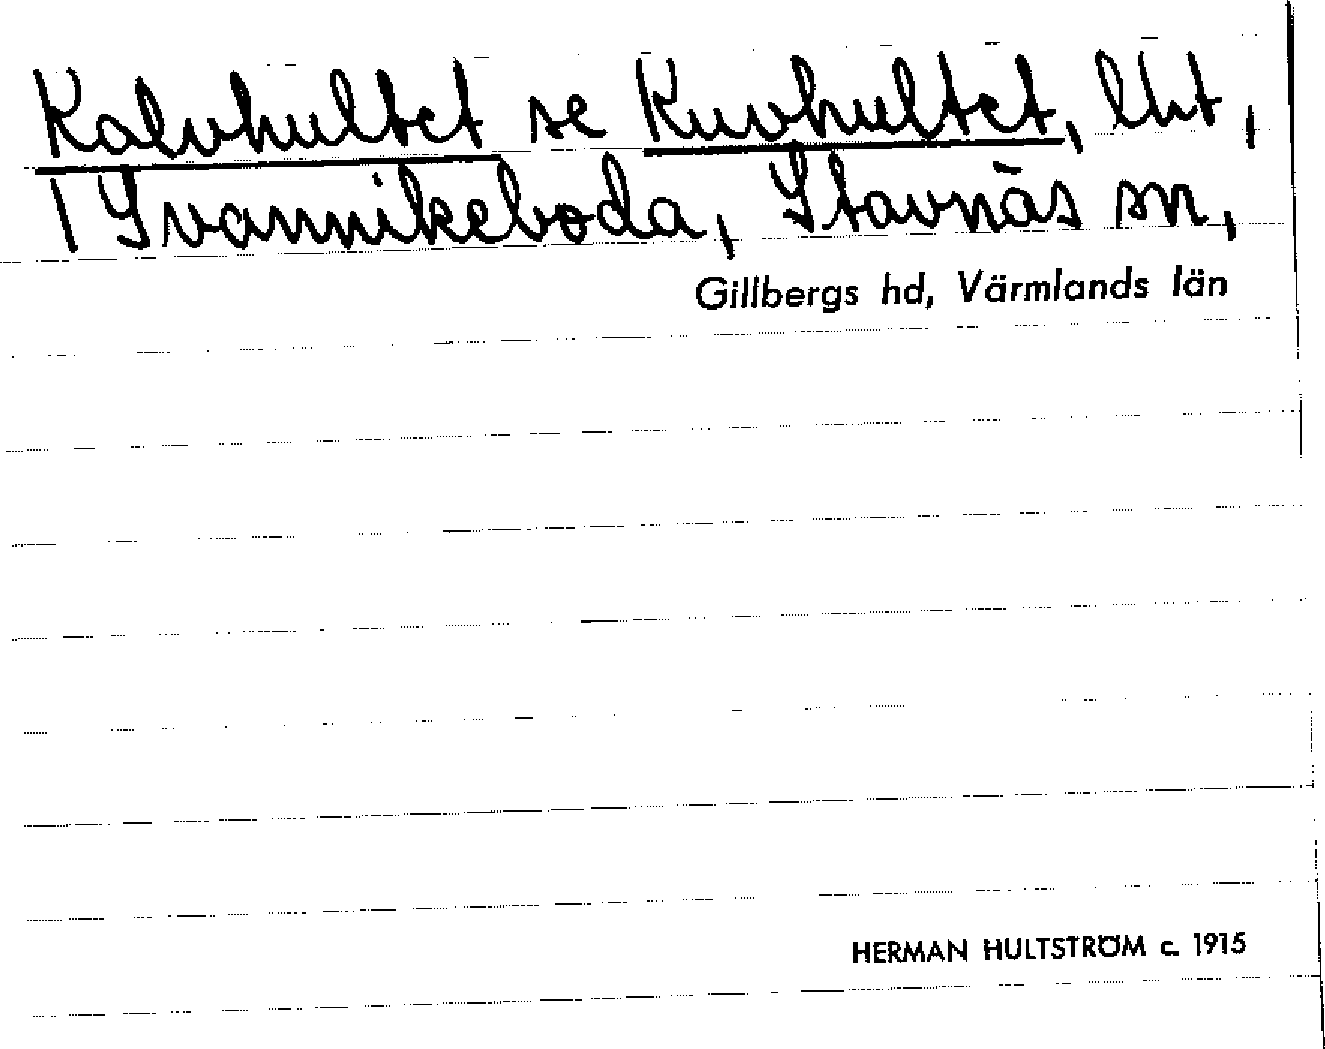 Kalvhultet se Kuvhultet, lht,
1 Svannikeboda, Stavnäs sn,
Gillbergs hd, Värmlands län
HERMAN HULTSTRÖM c. 1915